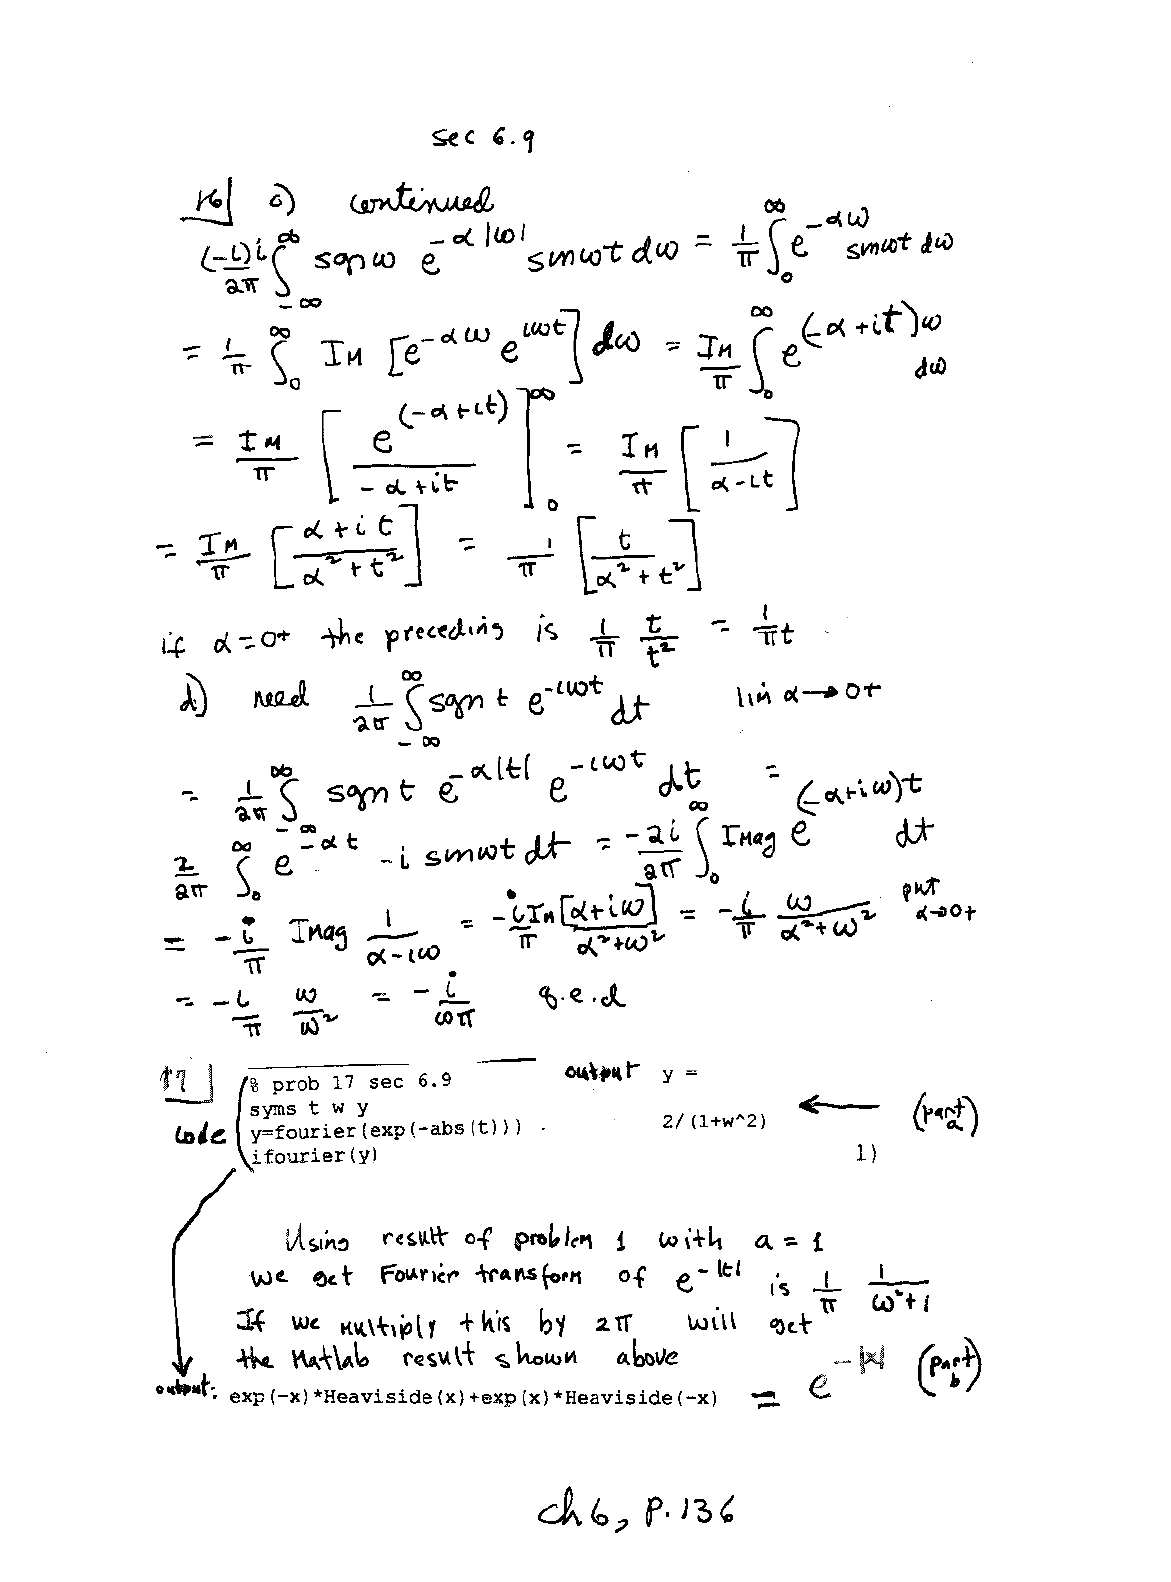 sec 6.9
16| c) continued
(-i)i/2π ∫_{-∞}^{∞} sgn ω e^{-α|ω|} sin ωt dω = 1/π ∫_0^∞ e^{-αω} sin ωt dω
= 1/π ∫_0^∞ Im [e^{-αω} e^{iωt}] dω = Im/π ∫_0^∞ e^{(-α+it)ω} dω
= Im/π [e^{(-α+it)}/(-α+it)]_0^∞ = Im/π [1/(α-it)]
= Im/π [(α+it)/(α²+t²)] = 1/π [t/(α²+t²)]
if α=0+ the preceding is 1/π t/t² = 1/πt
d) need 1/2π ∫_{-∞}^{∞} sgn t e^{-iωt} dt lim α→0+
= 1/2π ∫_{-∞}^{∞} sgn t e^{-α|t|} e^{-iωt} dt =
2/2π ∫_0^∞ e^{-αt} -i sin ωt dt = -2i/2π ∫_0^∞ Imag e^{(-α+iω)t} dt
= -i/π Imag 1/(α-iω) = -i/π Im[α+iω]/(α²+ω²) = -i/π ω/(α²+ω²) put α→0+
= -i/π ω/ω² = -i/ωπ q.e.d
17|
code
% prob 17 sec 6.9
syms t w y
y=fourier(exp(-abs(t)))
ifourier(y)
output y =
2/(1+w^2) ← (part a)
1)
Using result of problem 1 with a = 1
we get Fourier transform of e^{-|t|} is 1/π 1/(ω²+1)
If we multiply this by 2π will get
the Matlab result shown above
output: exp(-x)*Heaviside(x)+exp(x)*Heaviside(-x) = e^{-|x|} (part b)
ch 6, p. 136